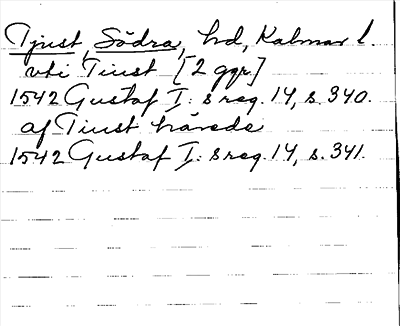 Tjust, Södra, hd, Kalmar l.
vti Tiust [2 ggr]
1542 Gustaf I:s reg. 14, s. 340.
af Tiust härede
1542 Gustaf I:s reg. 14, s. 341.